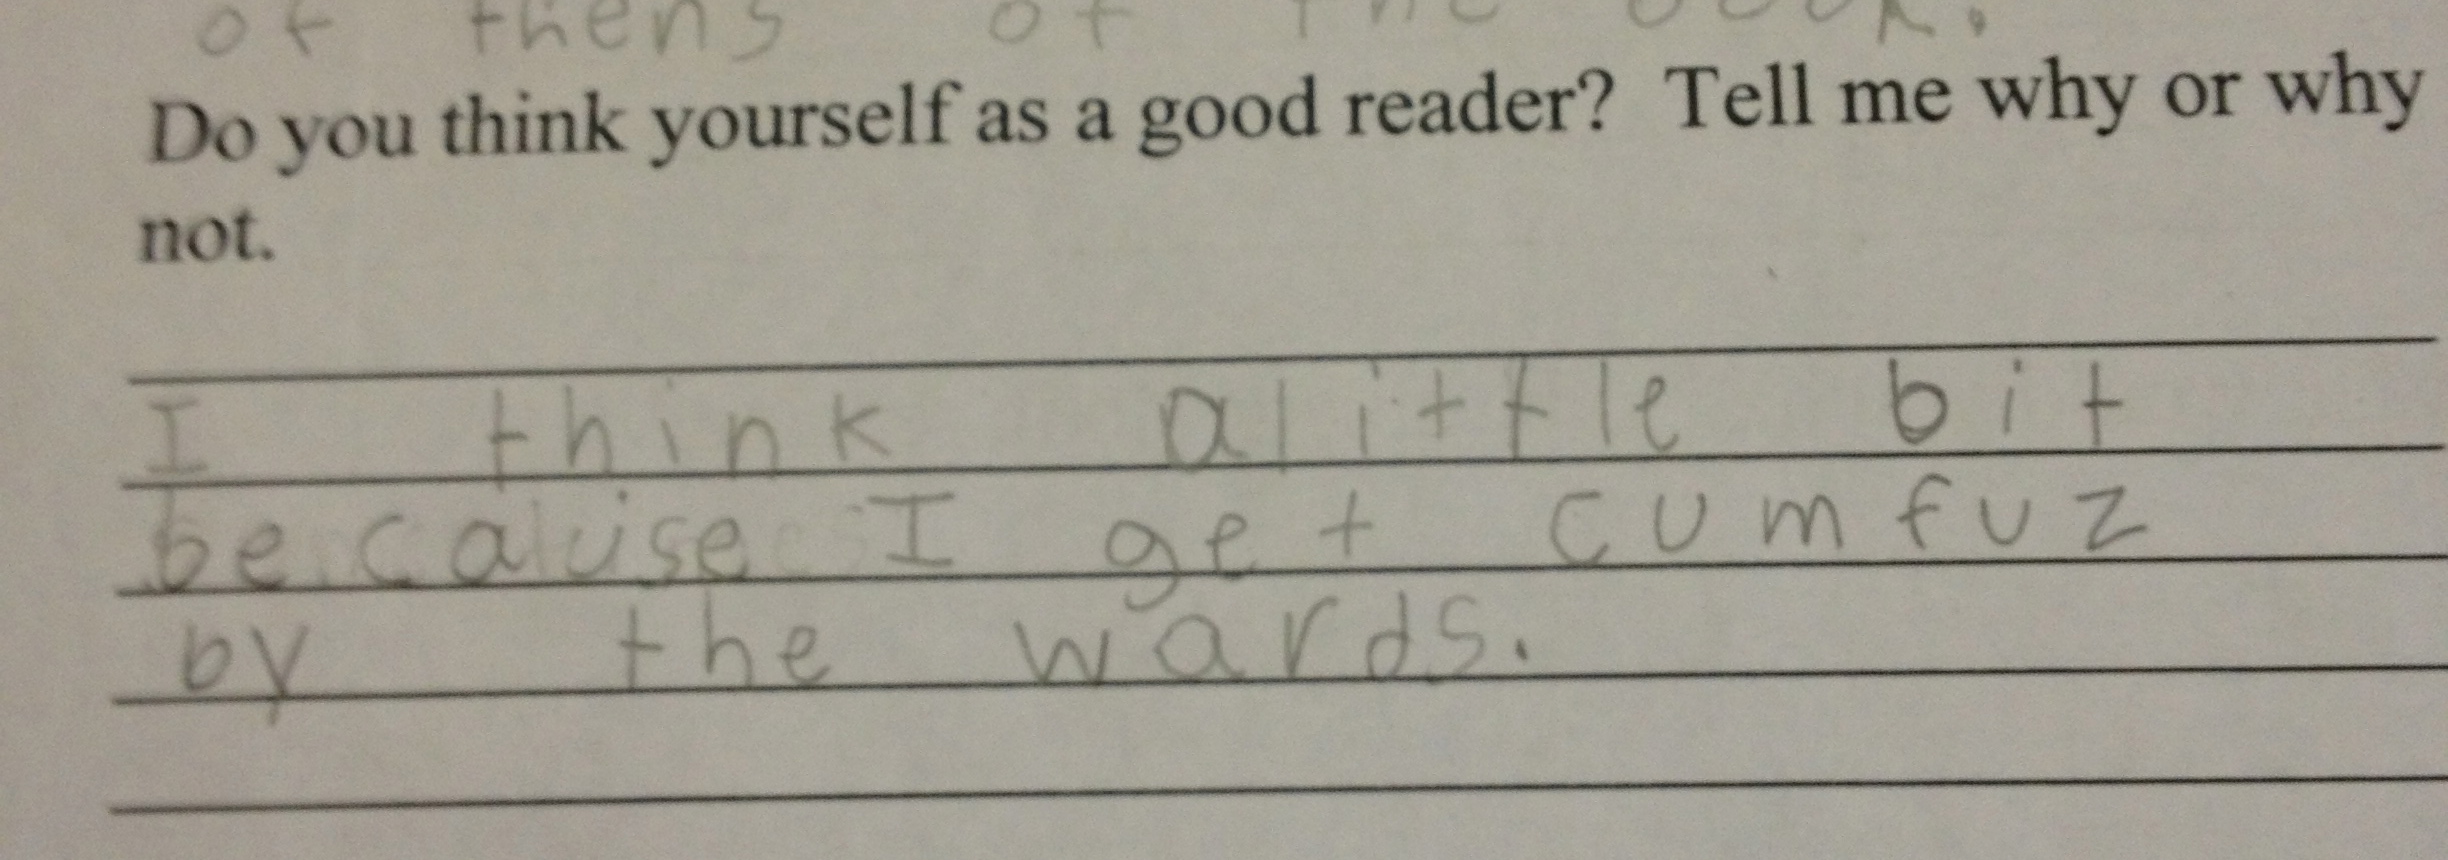 of thens of the book.
Do you think yourself as a good reader? Tell me why or why
not.
I think alittle bit
because I get cumfuz
by the wards.